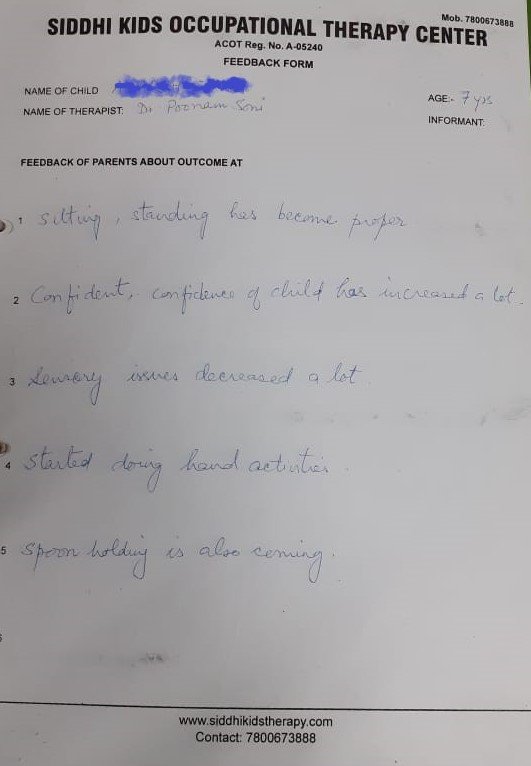 Mob. 7800673888
SIDDHI KIDS OCCUPATIONAL THERAPY CENTER
ACOT Reg. No. A-05240
FEEDBACK FORM
NAME OF CHILD
AGE:- 7 yrs
NAME OF THERAPIST: Dr Poonam Soni
INFORMANT:
FEEDBACK OF PARENTS ABOUT OUTCOME AT
1 Sitting, standing has become proper
2 Confident, confidence of child has increased a lot.
3 Sensory issues decreased a lot
4 Started doing hand activities.
5 Spoon holding is also coming.
www.siddhikidstherapy.com
Contact: 7800673888